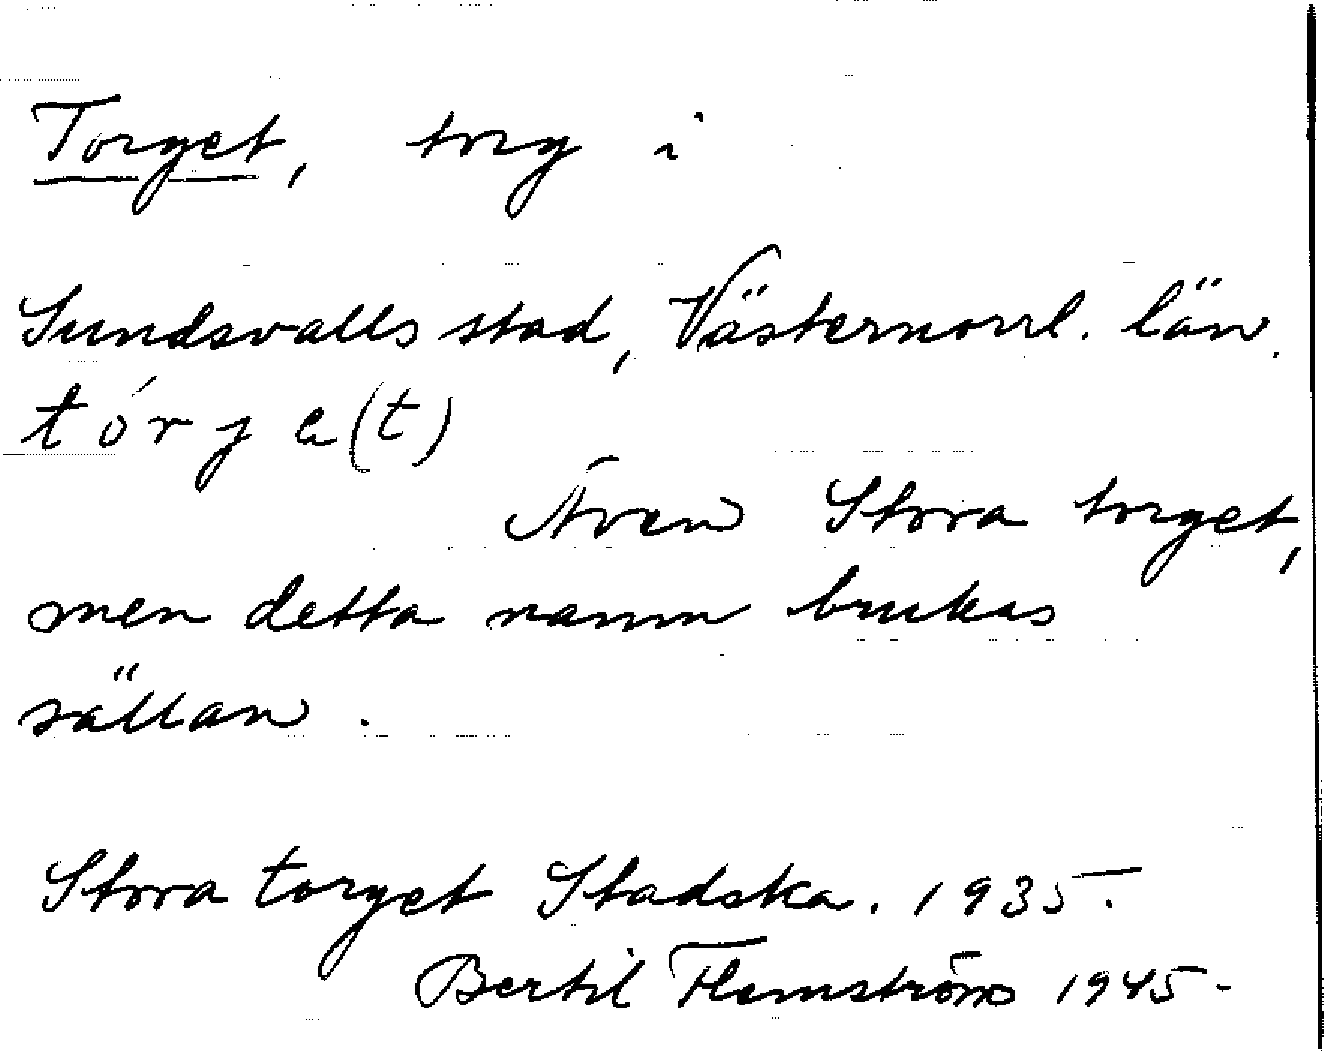 Torget, torg i
Sundsvalls stad, Västernorrl. län.
tórje(t)
Även Stora torget,
men detta namn brukas
sällan.
Stora torget Stadska. 1935.
Bertil Flemström 1945-